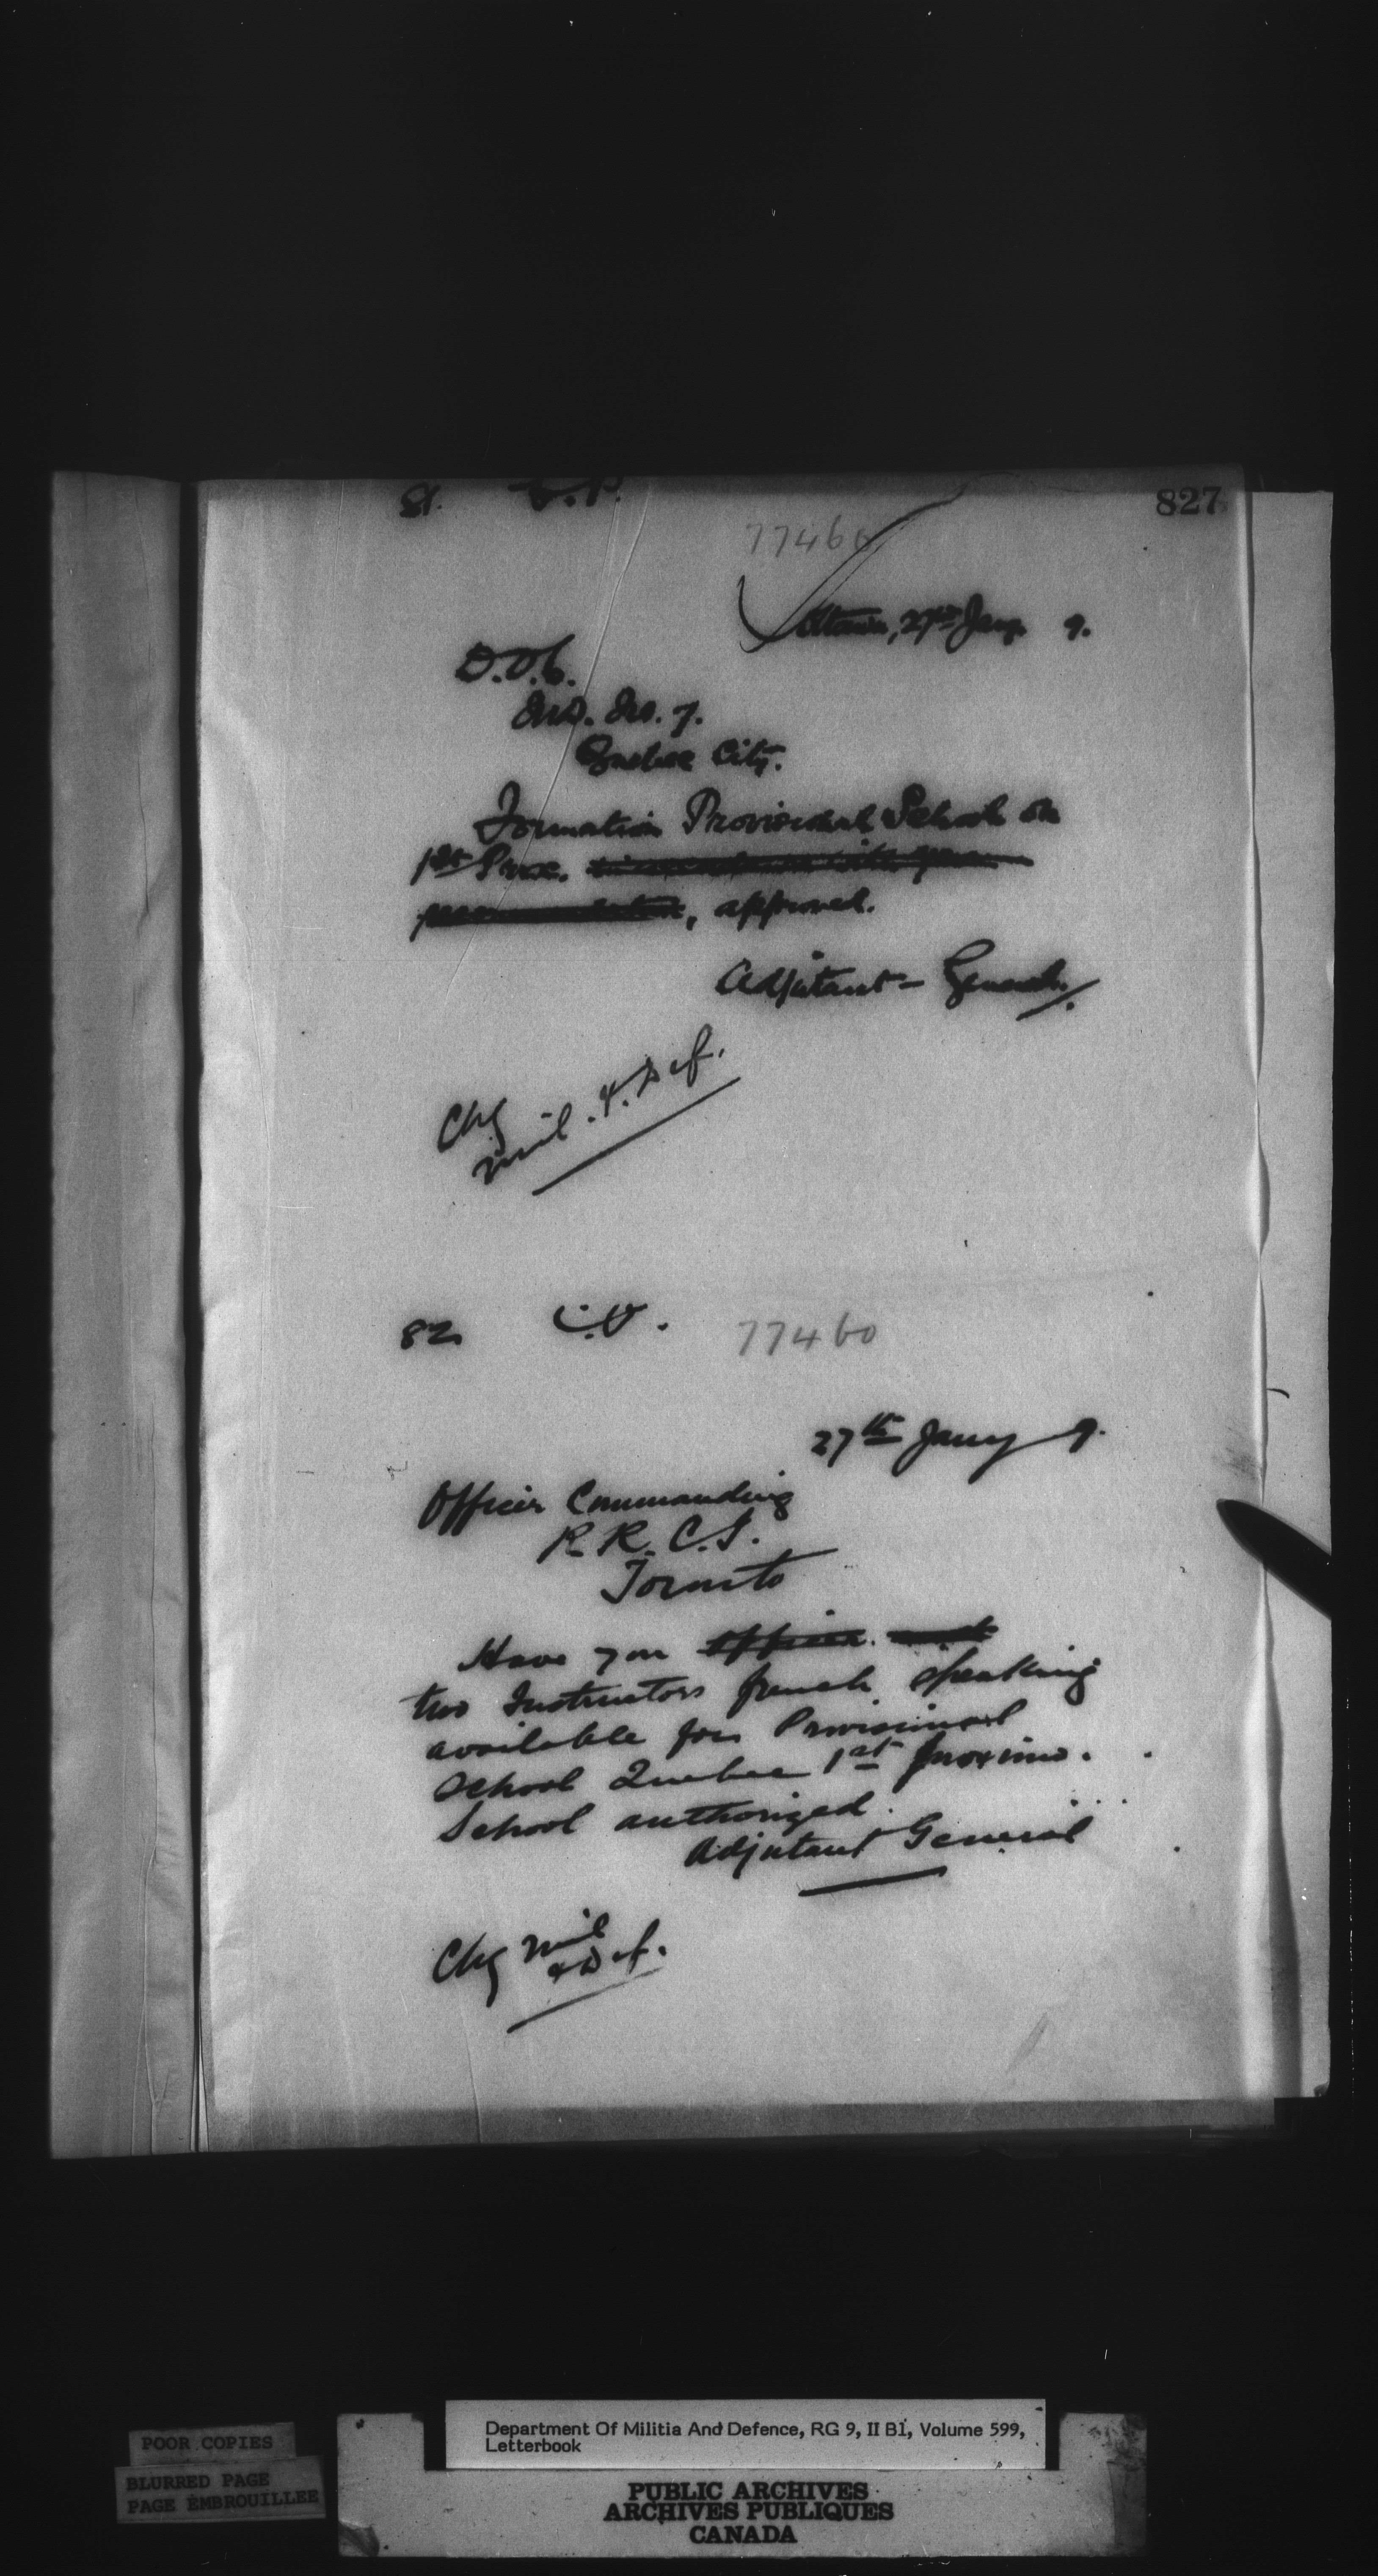 81. C.P. 827
77460
Ottawa, 27th Jany. 9.
D.O.C.
M.D. No. 7.
Quebec City.
Formation Provisional School on
1st Prox.
, approved.
Adjutant-General.
Chg
Mil. & Def.
82 C.P. 77460
27th Jany 9.
Officer Commanding
R.R.C.I.
Toronto
Have you officer
two Instructors french speaking
available for Provisional
School Quebec 1st proximo.
School authorized.
Adjutant General
Chg Mil
& Def.
POOR COPIES
BLURRED PAGE
PAGE EMBROUILLEE
Department Of Militia And Defence, RG 9, II B1, Volume 599,
Letterbook
PUBLIC ARCHIVES
ARCHIVES PUBLIQUES
CANADA